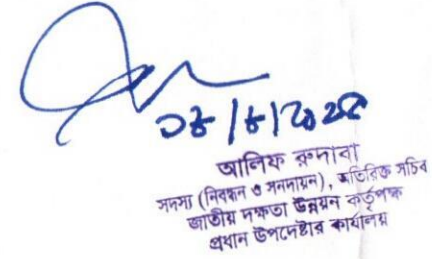 ১৮/৮/২০২৫
আলিফ রুদাবা
সদস্য (নিবন্ধন ও সনদায়ন), অতিরিক্ত সচিব
জাতীয় দক্ষতা উন্নয়ন কর্তৃপক্ষ
প্রধান উপদেষ্টার কার্যালয়